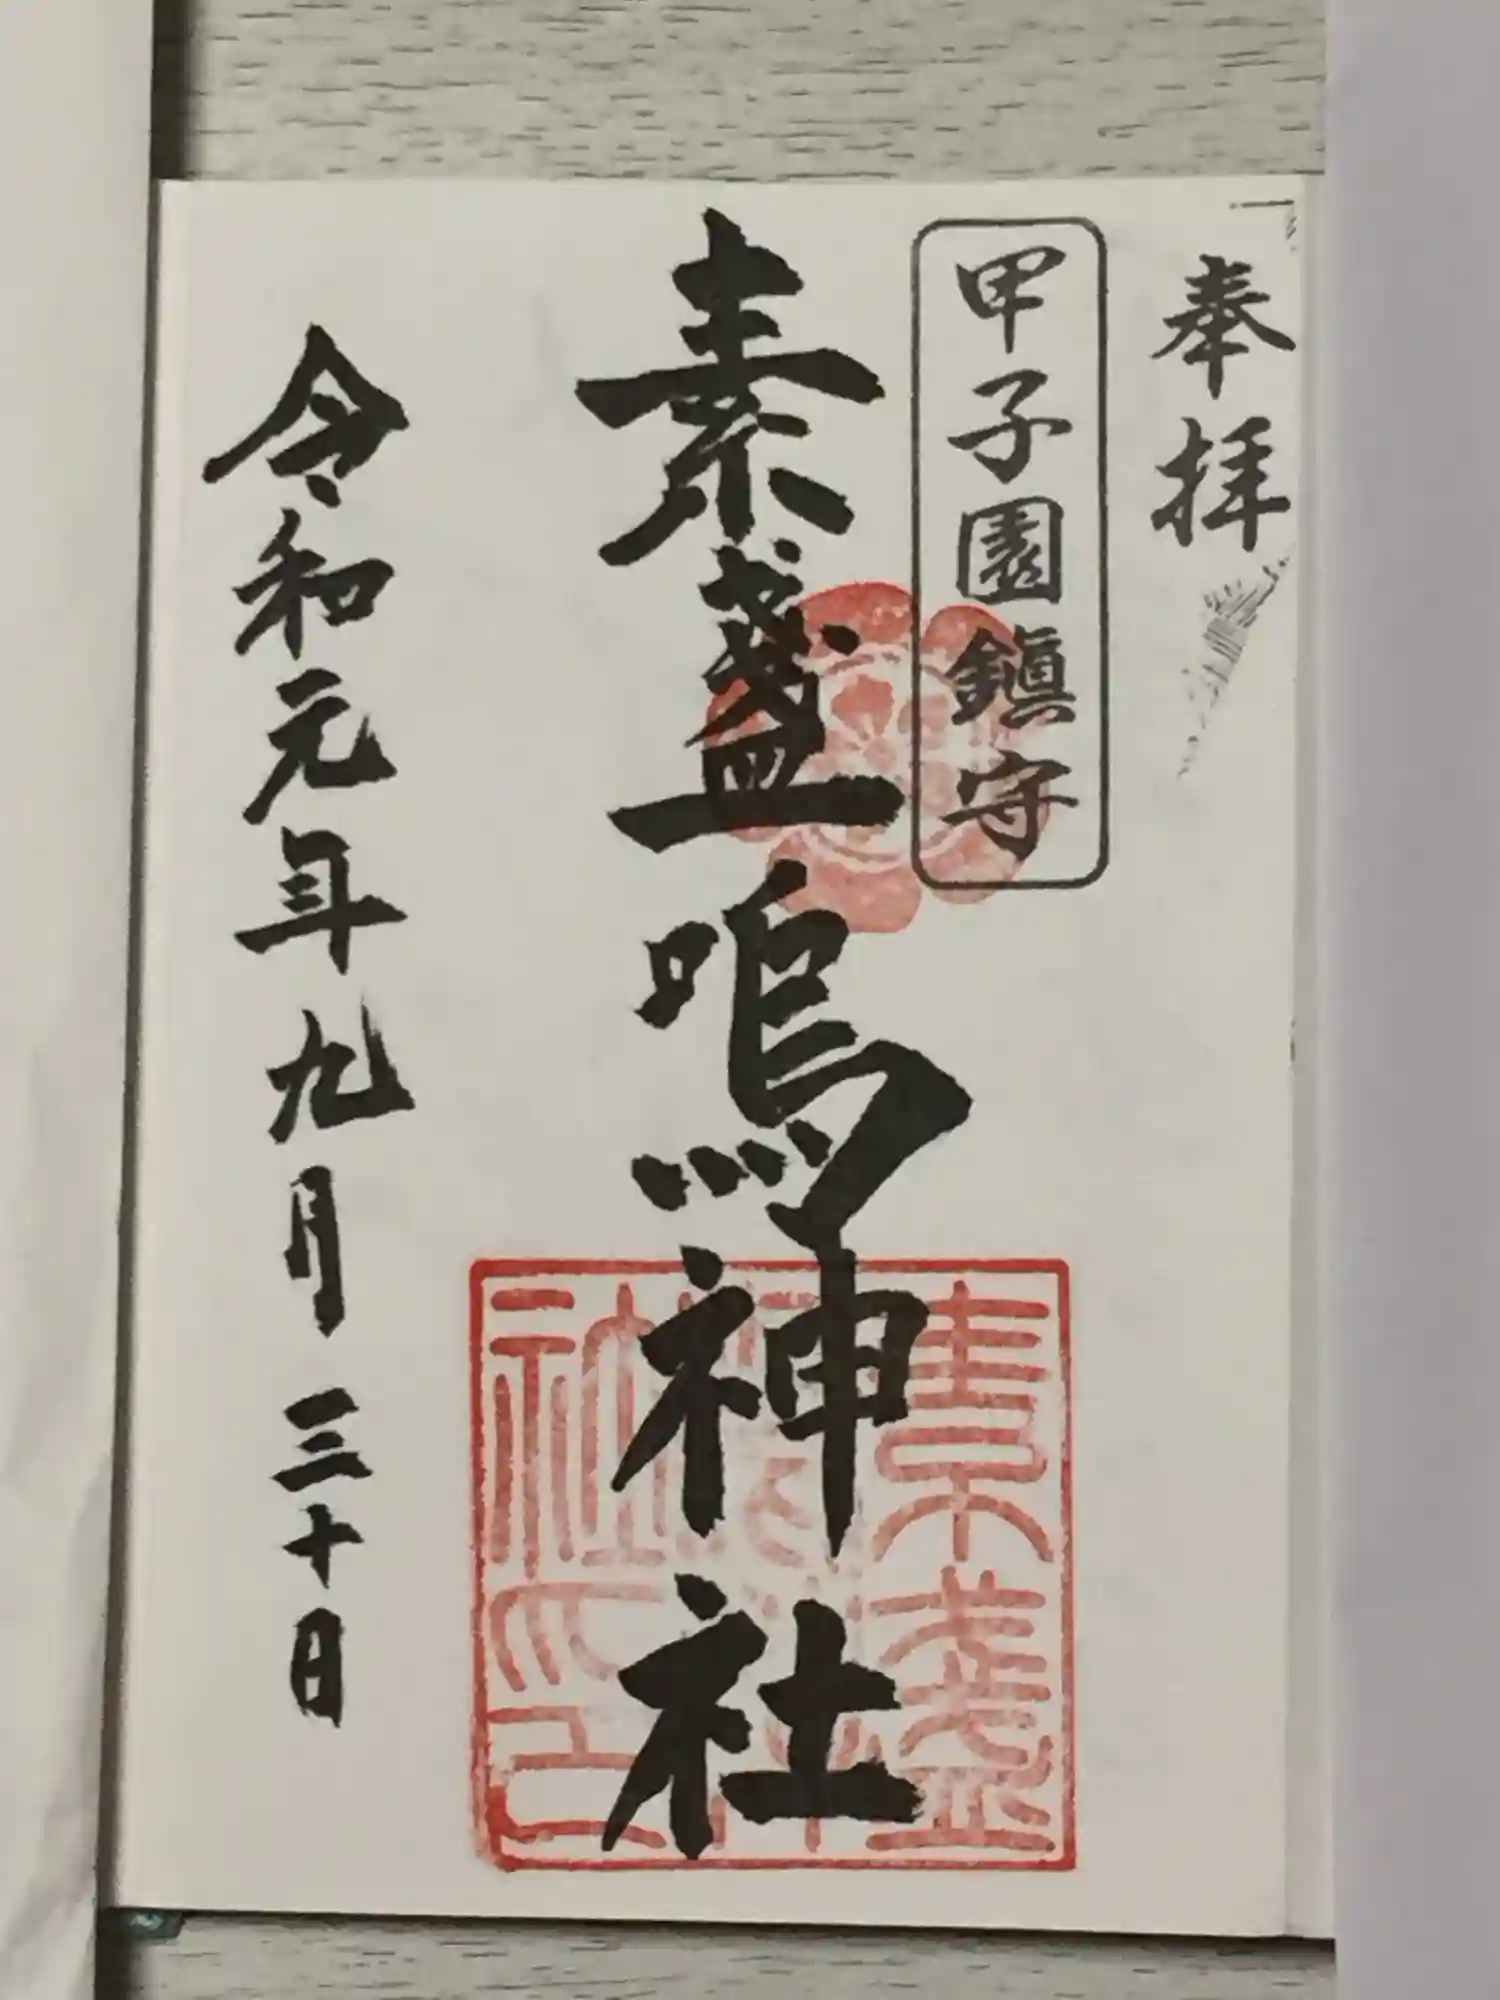 奉拝
甲子園鎮守
素盞嗚神社
令和元年九月三十日
素盞
社之印